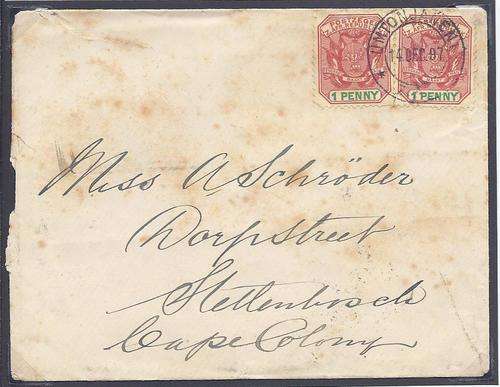 POSTZEGEL POSTZEGEL
1 PENNY 1 PENNY
14 DEC. 97
Miss A Schröder
Dorpstreet
Stellenbosch
Cape Colony